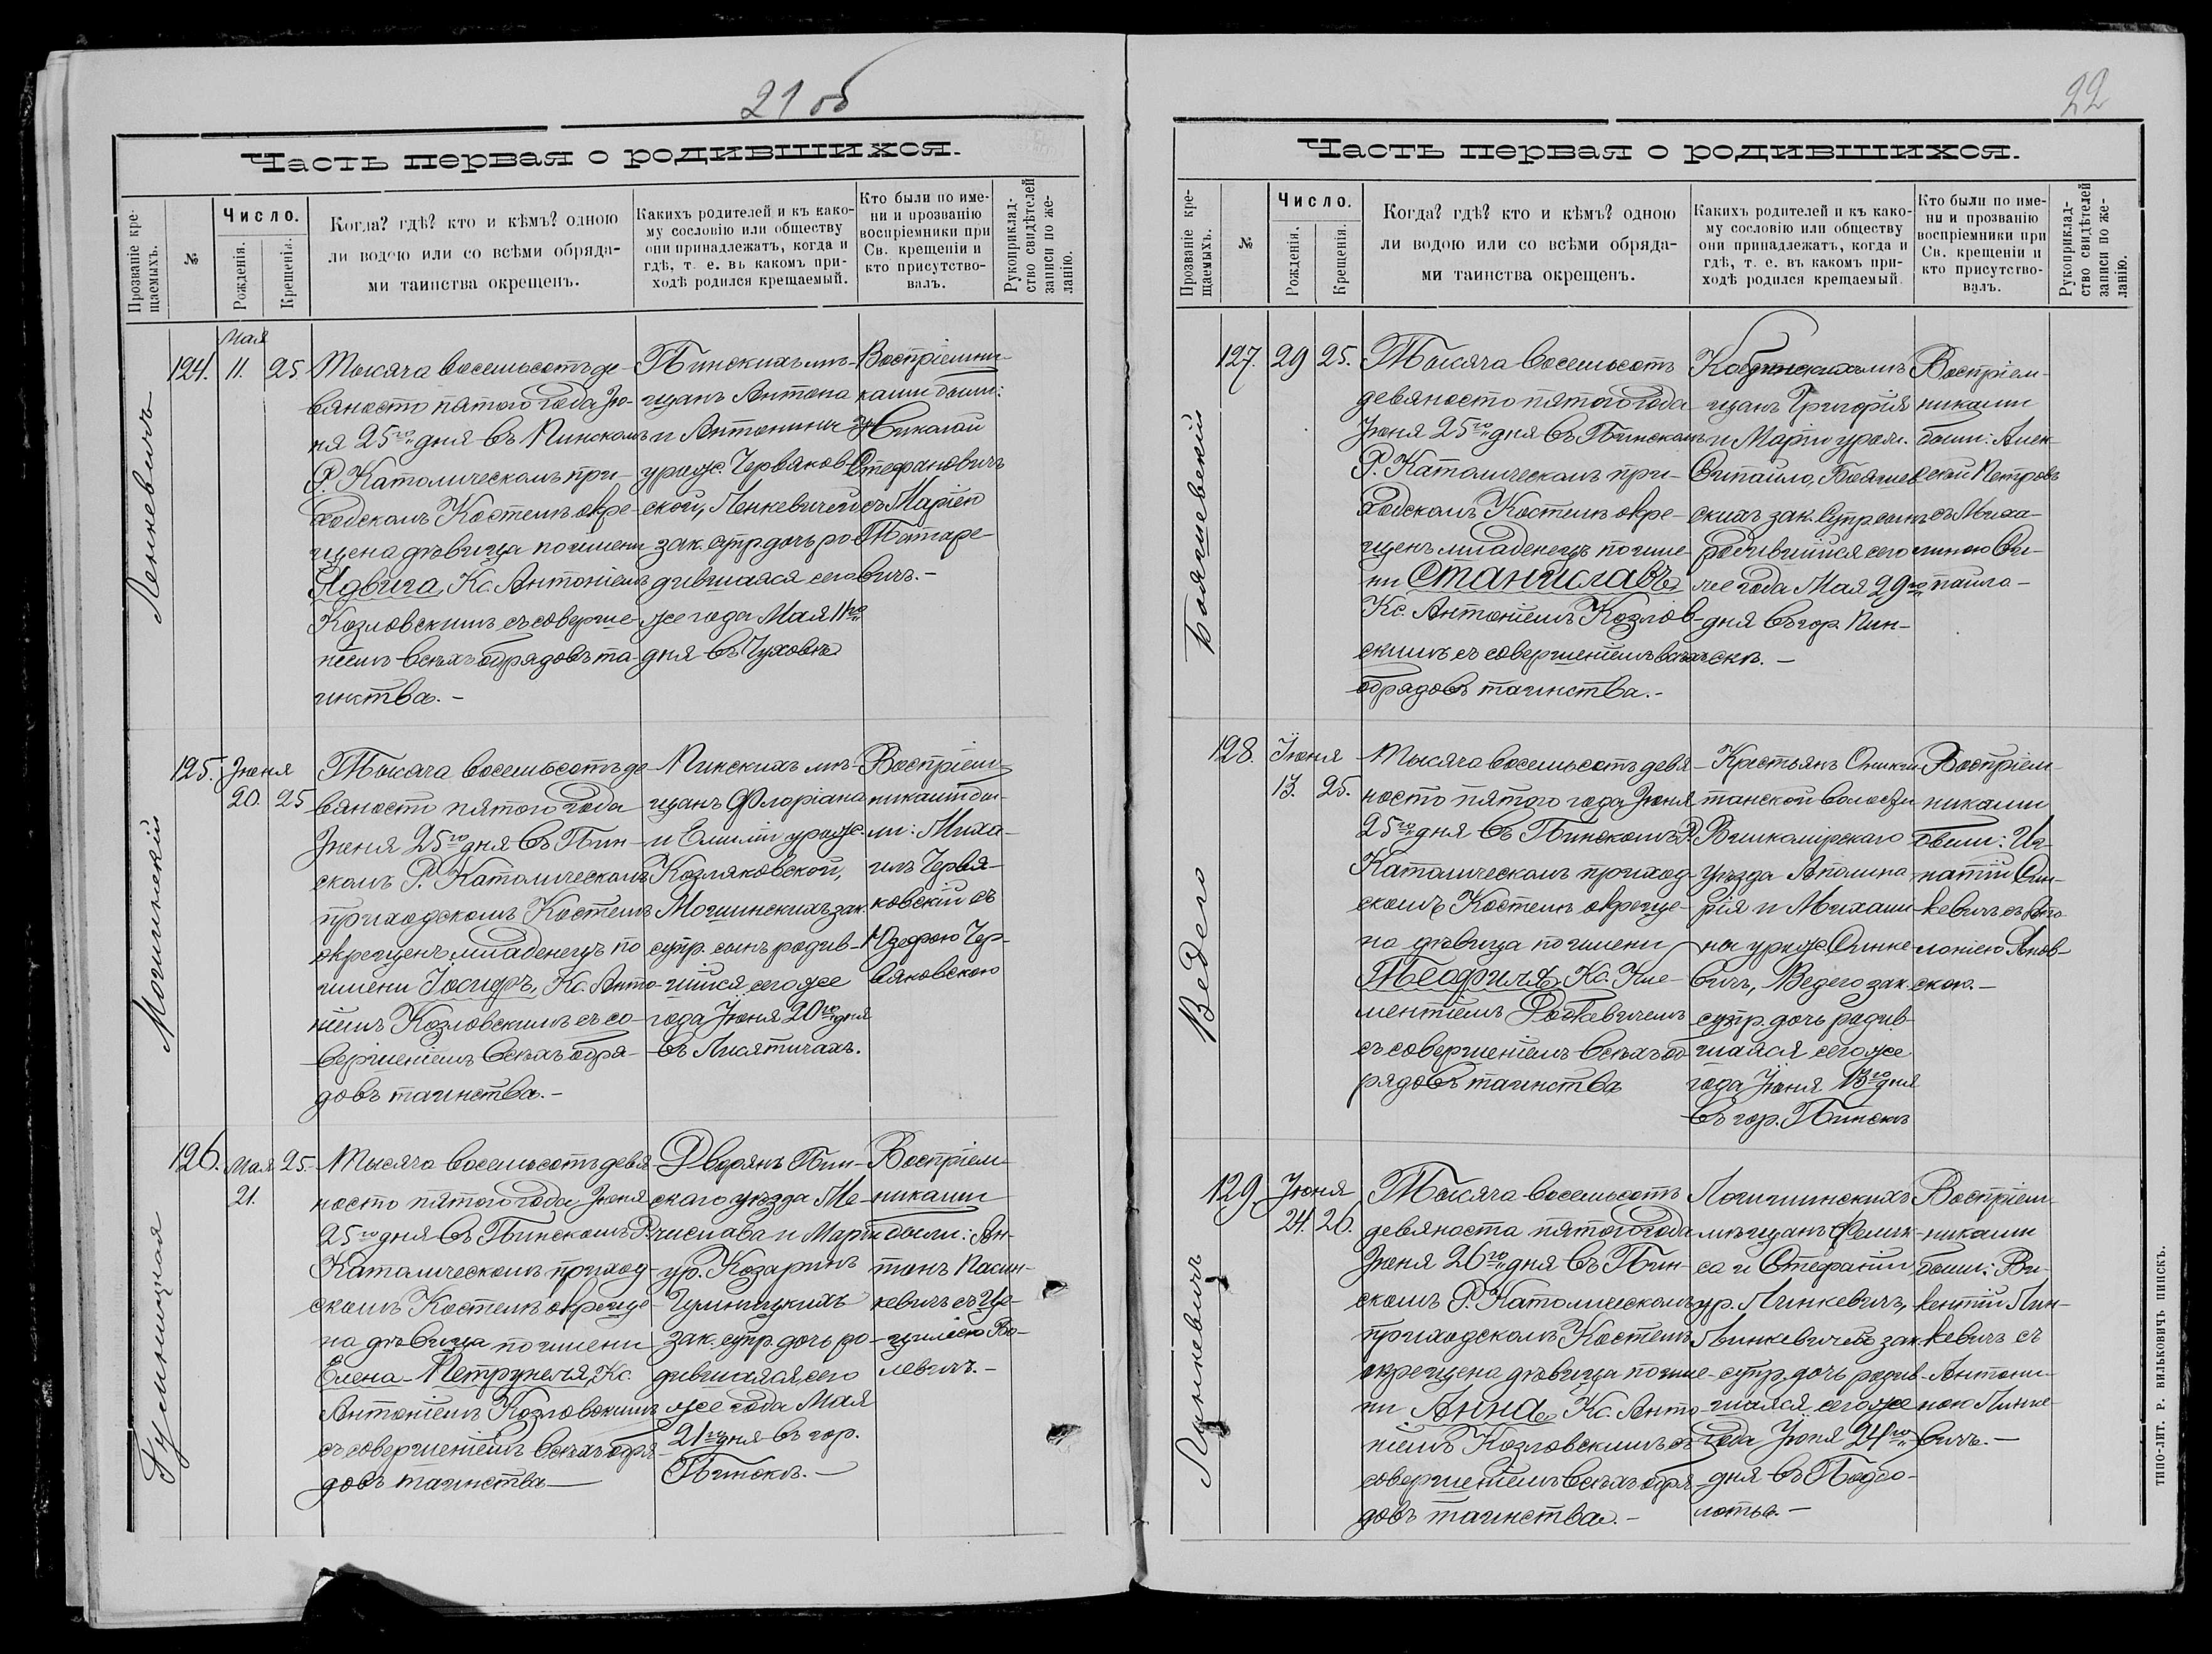 21 об
Часть первая о родившихся.
Прозваніе кре-
щаемыхъ.
№
Число.
Рожденія.
Крещенія.
Когда? гдѣ? кто и кѣмъ? одною
ли водою или со всѣми обряда-
ми таинства окрещенъ.
Какихъ родителей и къ како-
му сословію или обществу
они принадлежатъ, когда и
гдѣ, т. е. въ какомъ при-
ходѣ родился крещаемый.
Кто были по име-
ни и прозванію
воспріемники при
Св. крещеніи и
кто присутство-
валъ.
Рукоприклад-
ство свидѣтелей
записи по же-
ланію.
Ленкевичъ
124.
Мая
11.
25.
Тысяча восемьсотъ де-
вяносто пятого года Ію-
ня 25го дня въ Пинскомъ
Р. Католическомъ при-
ходскомъ Костелѣ окре-
щена дѣвица по имени
Ядвига, Кс. Антоніемъ
Козловскимъ съ соверше-
ніемъ всѣхъ обрядовъ та-
инства.-
Пинскихъ мѣ-
щанъ Антона
и Антонины
урожд. Червяков-
ской, Ленкевичей
зак. супр. дочь ро-
дившаяся сего
же года Мая 11го
дня въ Чуховѣ
Воспріемни-
ками были:
Николай
Стефановичъ
съ Маріею
Татаре-
вичъ.-
Могилинскій
125.
Іюня
20.
25
Тысяча восемьсотъ де-
вяносто пятого года
Іюня 25го дня въ Пин-
скомъ Р. Католическомъ
приходскомъ Костелѣ
окрещенъ младенецъ по
имени Іосифъ, Кс. Анто-
ніемъ Козловскимъ съ со-
вершеніемъ всѣхъ обря-
довъ таинства.-
Пинскихъ мѣ-
щанъ Флоріана
и Емиліи урожд.
Козляковской,
зак.
супр. сынъ родив-
шійся сего же
года Іюня 20го дня
въ Лисятичахъ.
Воспріем-
никами бы-
ли: Миха-
илъ Червя-
ковскій съ
Юзефою Чер-
вяковскою
Гулиницкая
126.
Мая
21.
25.
Тысяча восемьсотъ девя-
носто пятого года Іюня
25го дня въ Пинскомъ Р.
Католическомъ приход-
скомъ Костелѣ окреще-
на дѣвица по имени
Елена-Петрунеля, Кс.
Антоніемъ Козловскимъ
съ совершеніемъ всѣхъ обря-
довъ таинства
Дворянъ Пин-
скаго уѣзда Ме-
числава и Маріи
ур. Козаринъ
зак. супр. дочь ро-
дившаяся сего
же года Мая
21го дня въ гор.
Пинскѣ.-
Воспріем-
никами
были: Ан-
тонъ Пасин-
кевичъ съ Це-
циліею Во-
левичъ.-
22
Часть первая о родившихся.
Прозваніе кре-
щаемыхъ.
№
Число.
Рожденія.
Крещенія.
Когда? гдѣ? кто и кѣмъ? одною
ли водою или со всѣми обряда-
ми таинства окрещенъ.
Какихъ родителей и къ како-
му сословію или обществу
они принадлежатъ, когда и
гдѣ, т. е. въ какомъ при-
ходѣ родился крещаемый.
Кто были по име-
ни и прозванію
воспріемники при
Св. крещеніи и
кто присутство-
валъ.
Рукоприклад-
ство свидѣтелей
записи по же-
ланію.
127.
29
25.
Тысяча восемьсотъ
девяносто пятого года
Іюня 25го дня въ Пинскомъ
Р. Католическомъ при-
ходскомъ Костелѣ окре-
щенъ младенецъ по име-
ни Станиславъ
Кс. Антоніемъ Козлов-
скимъ съ совершеніемъ всѣхъ
обрядовъ таинства.-
Кобринскихъ мѣ-
щанъ Григорія
и Маріи урож.
скихъ зак. супр. сынъ
родившійся сего
же года Мая 29го
дня въ гор. Пин-
скѣ.-
Воспріем-
никами
были: Алек-
сѣй Петровъ
съ Миха-
линою
Ведего
128.
Іюня
13.
25.
Тысяча восемьсотъ девя-
носто пятого года Іюня
25го дня въ Пинскомъ Р.
Католическомъ приход-
скомъ Костелѣ окреще-
на дѣвица по имени
Теофиля, Кс. Кле-
ментіемъ
съ совершеніемъ всѣхъ об-
рядовъ таинства
Крестьянъ
волости
Вилкомірскаго
уѣзда Аполина-
рія и Михали-
ны урожд. Синке-
вичъ, Ведего зак.
супр. дочь родив-
шаяся сего же
года Іюня 13го дня
въ гор. Пинскѣ
Воспріем-
никами
были: Иг-
натій Син-
кевичъ съ Апо-
лоніею Янов-
скою.-
Линкевичъ
129.
Іюня
24.
26.
Тысяча восемьсотъ
девяноста пятого года
Іюня 26го дня въ Пин-
скомъ Р. Католическомъ
приходскомъ Костелѣ
окрещена дѣвица по име-
ни Анна, Кс. Анто-
ніемъ Козловскимъ съ
совершеніемъ всѣхъ обря-
довъ таинства.-
Логишинскихъ
мѣщанъ Феликс-
са и Стефаніи
ур. Линкевичъ,
Линкевичей зак.
супр. дочь родив-
шаяся сего же
года Іюня 24го
дня въ Подбо-
лотье.-
Воспріем-
никами
были: Ви-
кентій Лин-
кевичъ съ
Антони-
ною Линке-
вичъ.-
ТИПО-ЛИТ. Р. ВИЛЬКОВИЧЪ ПИНСКЪ.